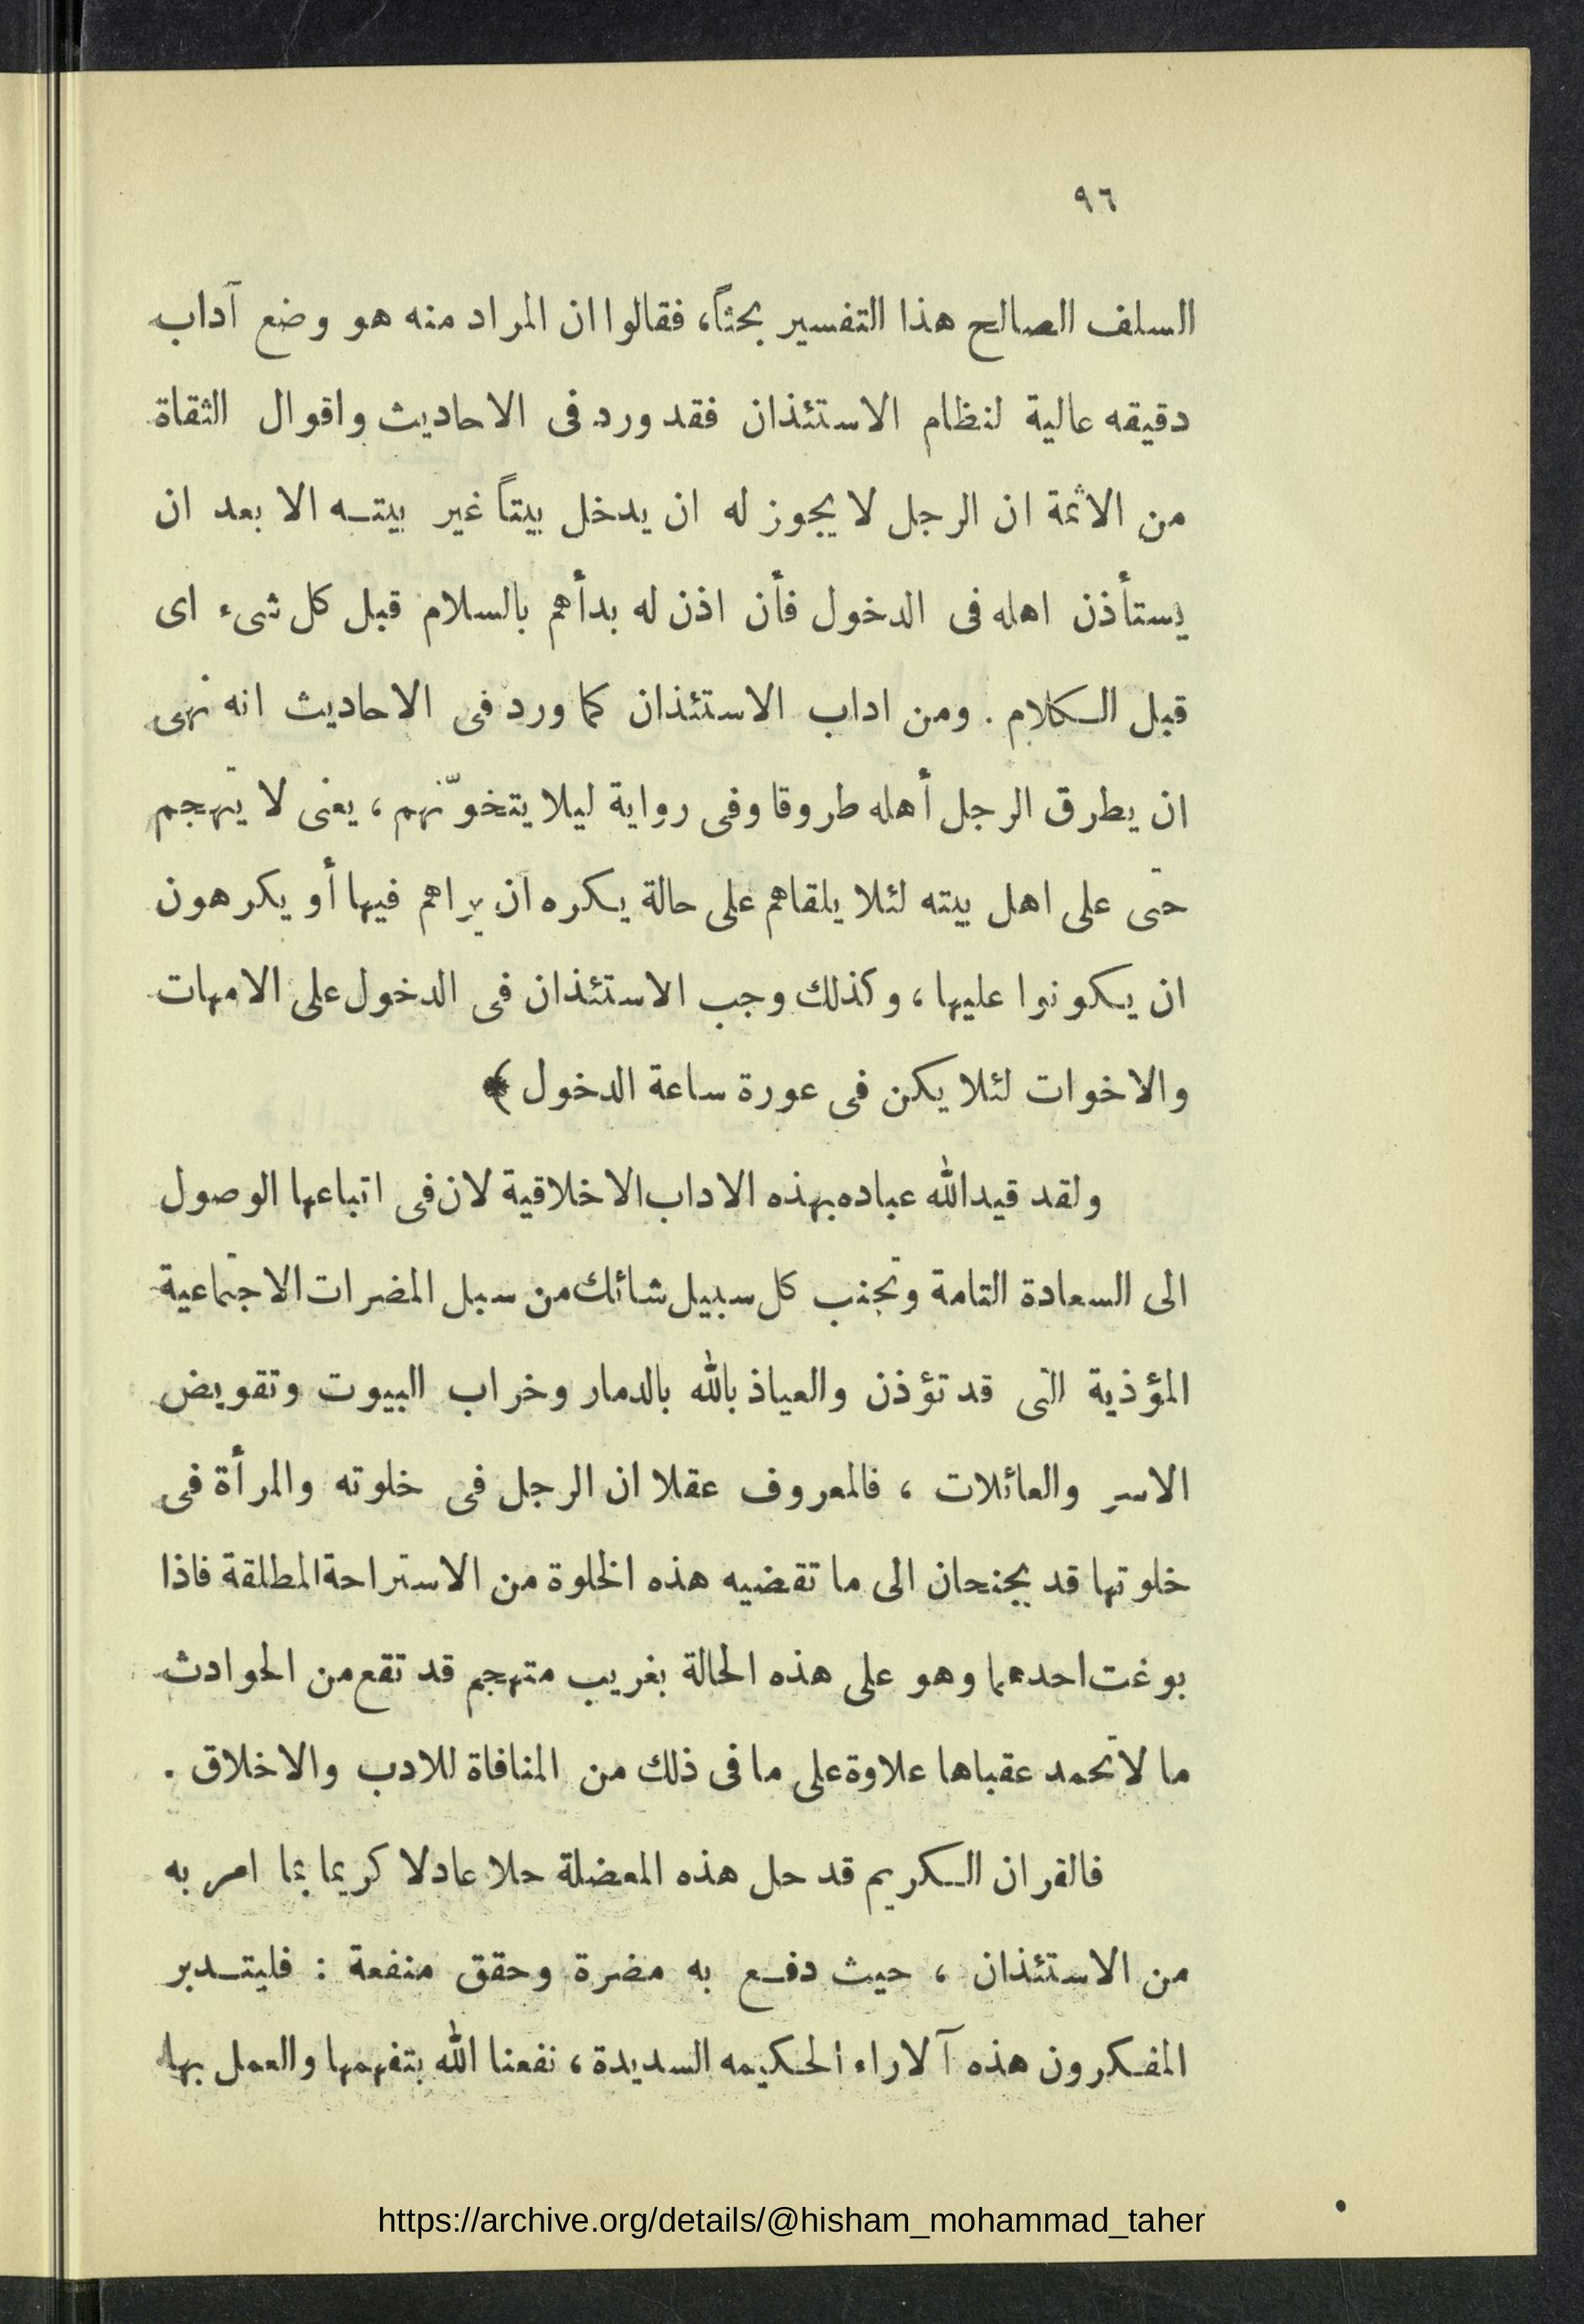 ٩٦
السلف الصالح هذا التفسير بحثاً، فقالوا ان المراد منه هو وضع آداب
دقيقه عالية لنظام الاستئذان فقد ورد فى الاحاديث واقوال الثقاة
من الائمة ان الرجل لا يجوز له ان يدخل بيتاً غير بيتـه الا بعد ان
يستأذن اهله فى الدخول فأن اذن له بدأهم بالسلام قبل كل شىء اى
قبل الكلام . ومن اداب الاستئذان كما ورد فى الاحاديث انه نهى
ان يطرق الرجل أهله طروقا وفى رواية ليلا يتخوّنهم ، يعنى لا يتهجم
حتى على اهل بيته لئلا يلقاهم على حالة يكره ان يراهم فيها أو يكرهون
ان يكونوا عليها ، وكذلك وجب الاستئذان فى الدخول على الامهات
والاخوات لئلا يكن فى عورة ساعة الدخول ﴾
ولقد قيد الله عباده بهذه الاداب الاخلاقية لان فى اتباعها الوصول
الى السعادة التامة وتجنب كل سبيل شائك من سبل المضرات الاجتماعية
المؤذية التى قد تؤذن والعياذ بالله بالدمار وخراب البيوت وتقويض
الاسر والعائلات ، فالمعروف عقلا ان الرجل فى خلوته والمرأة فى
خلوتها قد يجنحان الى ما تقضيه هذه الخلوة من الاستراحة المطلقة فاذا
بوغت احدهما وهو على هذه الحالة بغريب متهجم قد تقع من الحوادث
ما لا تحمد عقباها علاوة على ما فى ذلك من المنافاة للادب والاخلاق .
فالقران الكريم قد حل هذه المعضلة حلا عادلا كريما بما امر به
من الاستئذان ، حيث دفـع به مضرة وحقق منفعة : فليتـدبر
المفكرون هذه آلاراء الحكيمه السديدة ، نفعنا الله بتفهمها والعمل بها
https://archive.org/details/@hisham_mohammad_taher